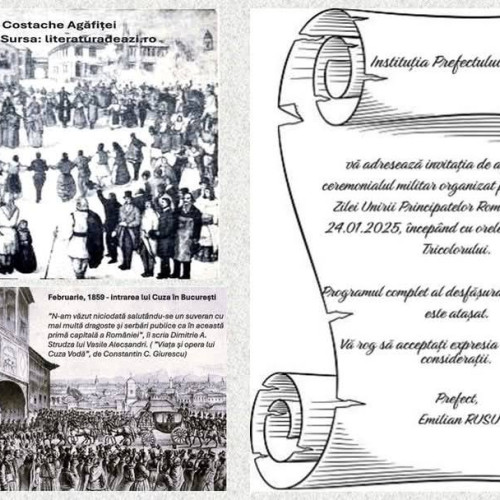 Costache Agăfiței
Sursa: literaturadeazi.ro
Februarie, 1859 - intrarea lui Cuza în București
"N-am văzut niciodată salutându-se un suveran cu
mai multă dragoste și serbări publice ca în această
primă capitală a României", îi scria Dimitrie A.
Strudza lui Vasile Alecsandri. ( "Viața și opera lui
Cuza Vodă", de Constantin C. Giurescu)
Instituția Prefectului
vă adresează invitația de a
ceremonialul militar organizat
Zilei Unirii Principatelor Rom
24.01.2025, începând cu orele
Tricolorului.
Programul complet al desfășura
este atașat.
Vă rog să acceptați expresia
considerații.
Prefect,
Emilian RUSU